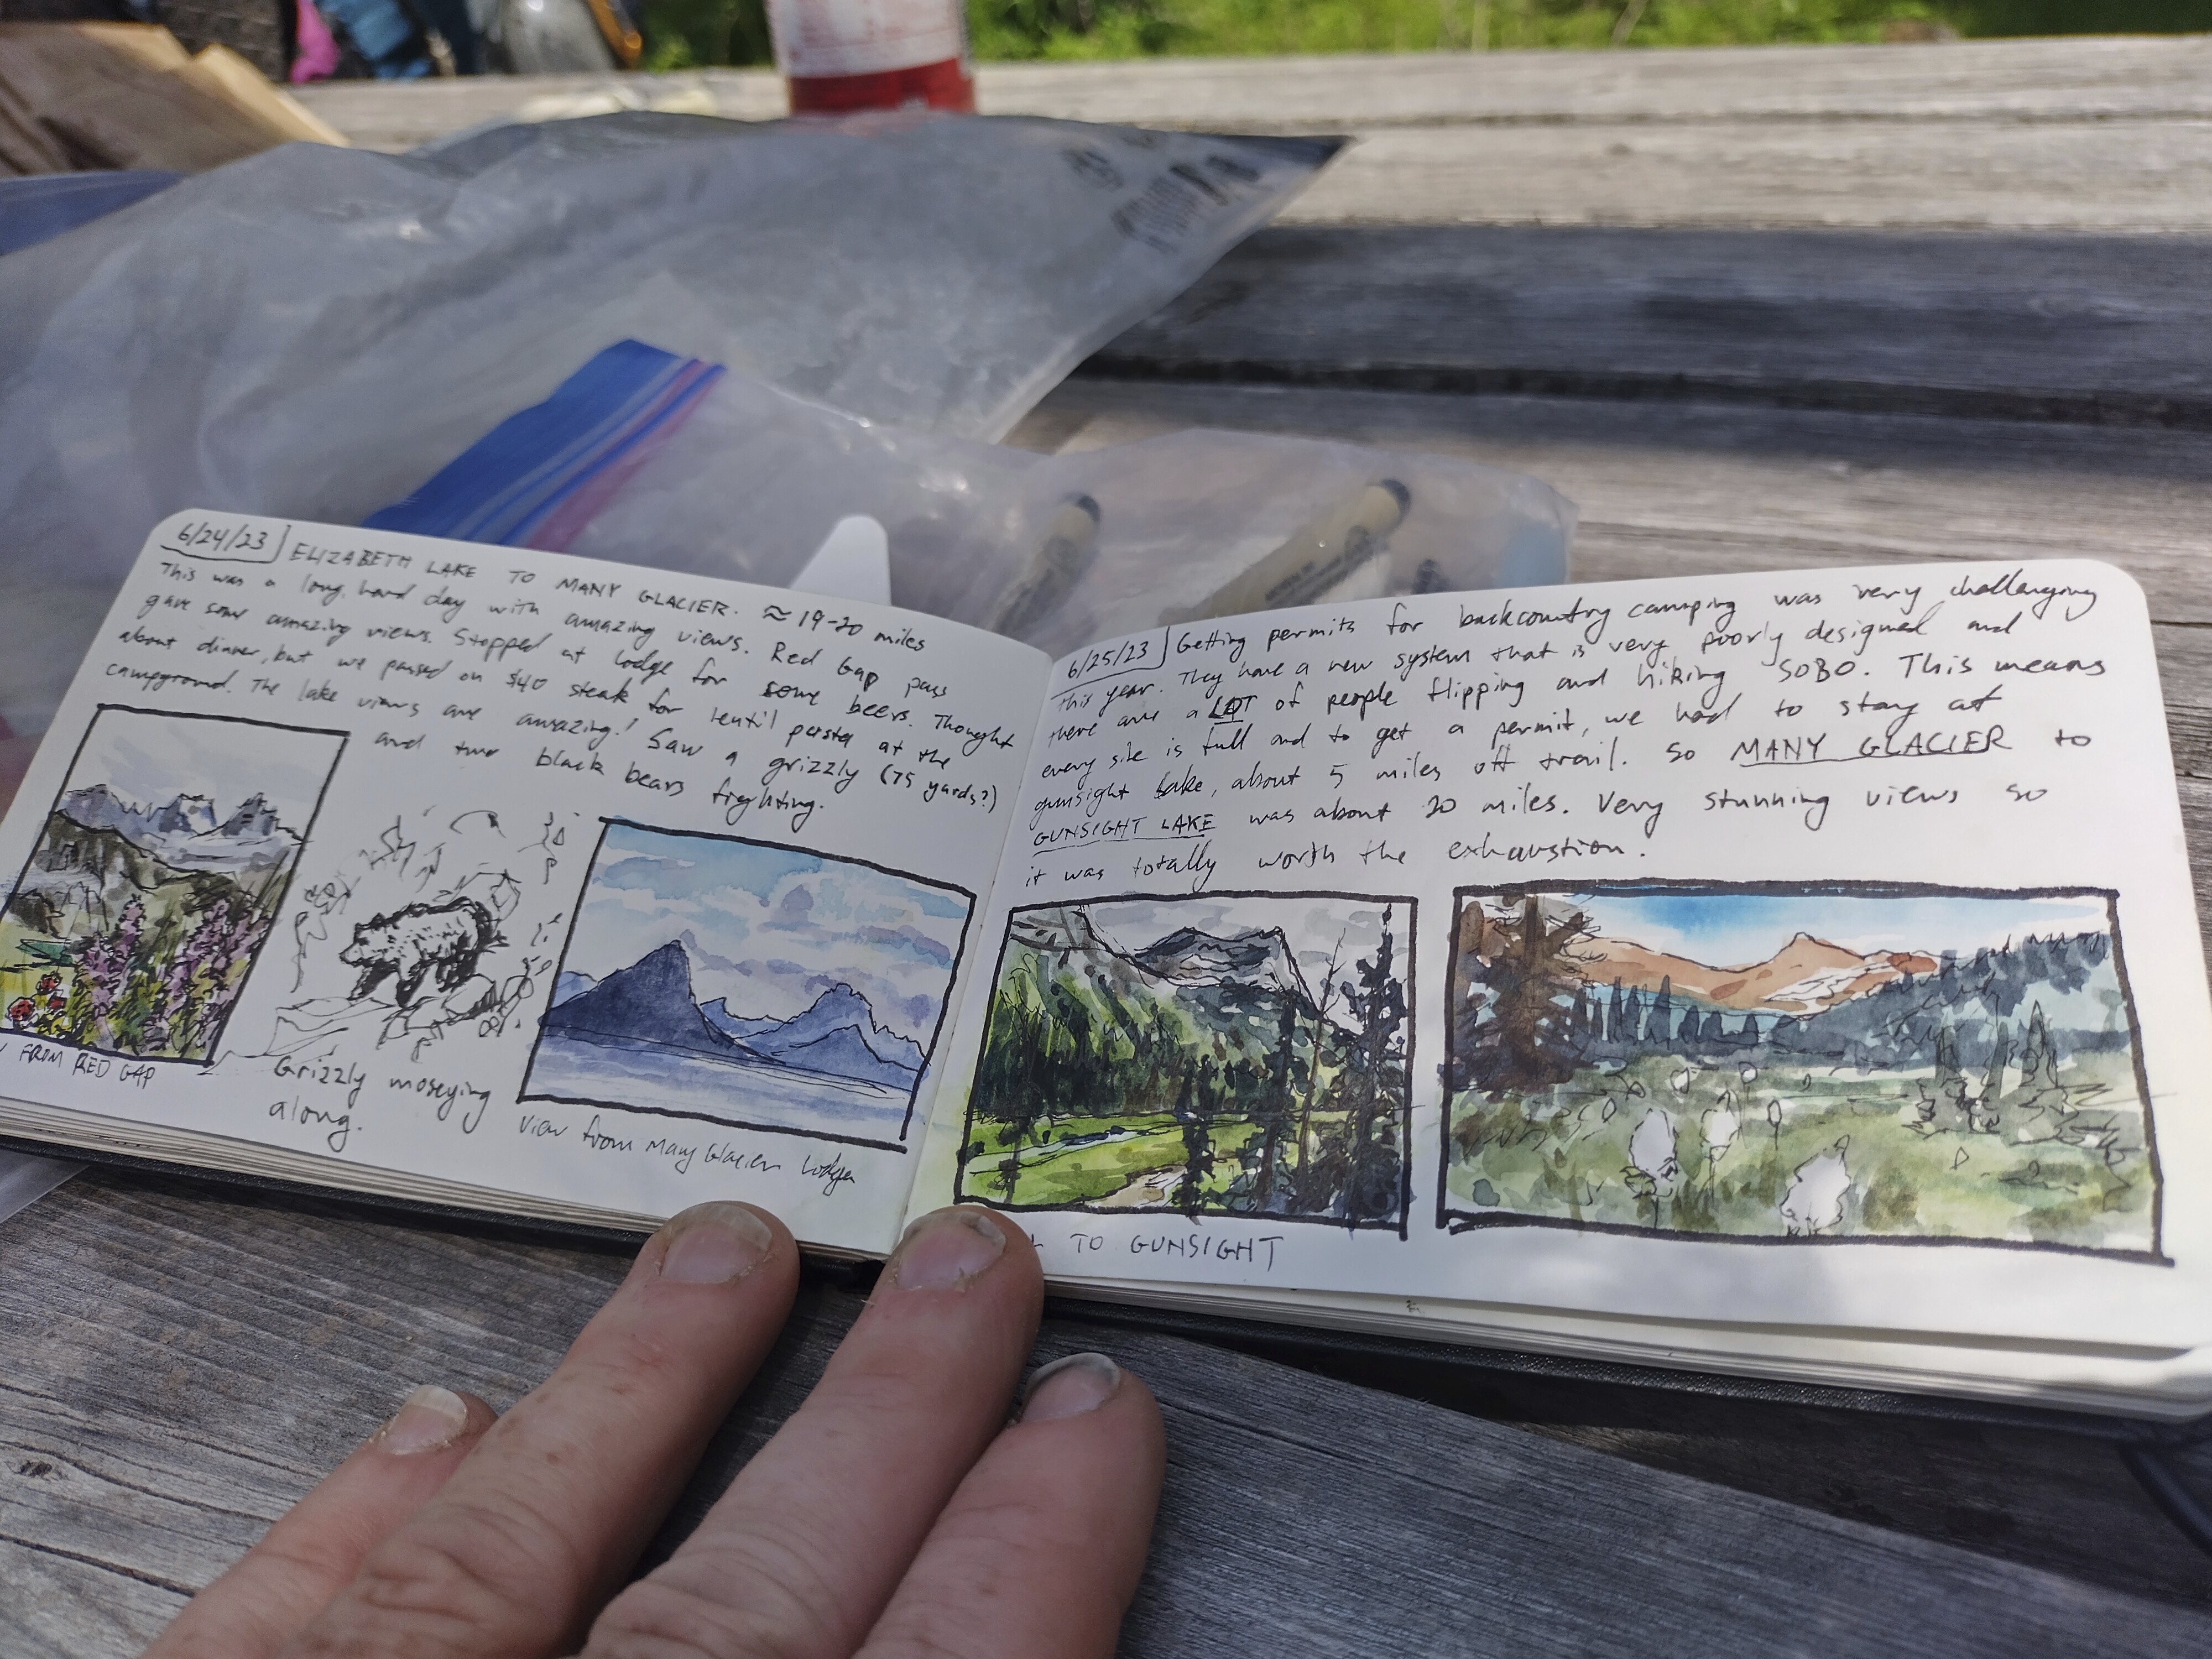 6/24/23 ELIZABETH LAKE TO MANY GLACIER. ≈ 19-20 miles
This was a long, hard day with amazing views. Red Gap pass
gave some amazing views. Stopped at lodge for some beers. Thought
about dinner, but we passed on $40 steak for lentil pasta at the
campground. The lake views are amazing! Saw a grizzly (75 yards?)
and two black bears fighting.
FROM RED GAP
Grizzly moseying
along.
View from Many Glacier Lodge
6/25/23 Getting permits for backcountry camping was very challenging
this year. They have a new system that is very poorly designed and
there are a LOT of people flipping and hiking SOBO. This means
every site is full and to get a permit, we had to stay at
gunsight Lake, about 5 miles off trail. So MANY GLACIER to
GUNSIGHT LAKE was about 20 miles. Very stunning views so
it was totally worth the exhaustion.
TO GUNSIGHT